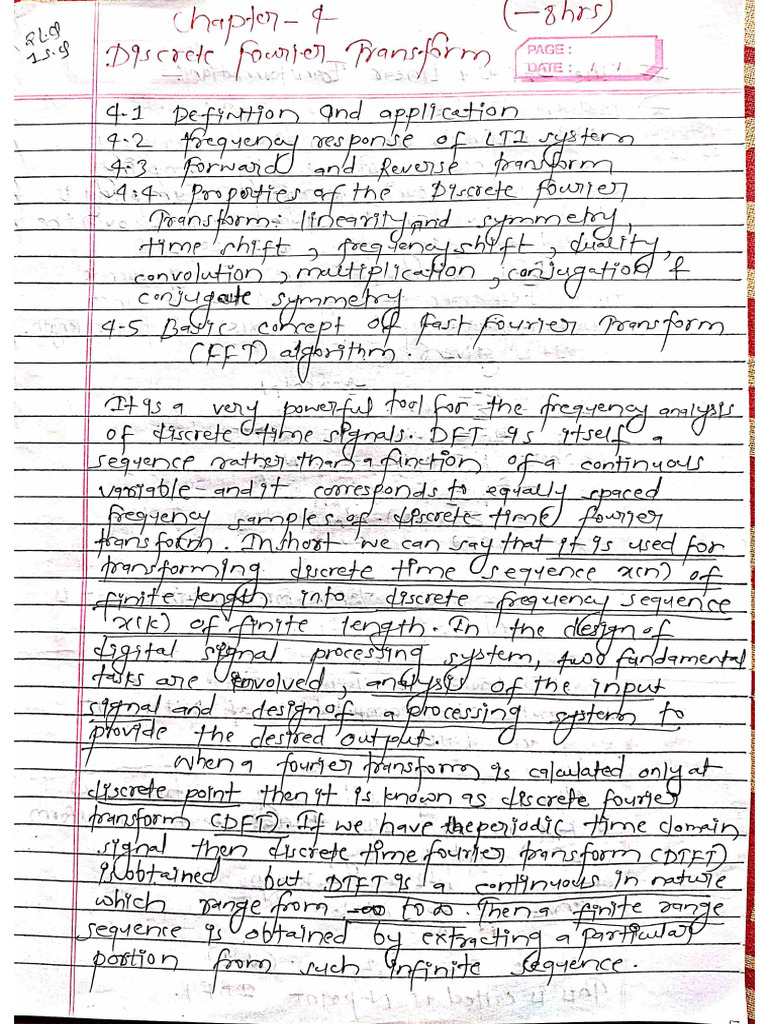 Chapter-4 (-8hrs)
Discrete Fourier Transform
PAGE:
DATE:
4.1 Definition and application
4.2 frequency response of LTI system
4.3 Forward and Reverse transform
4.4 Properties of the Discrete fourier
Transform: linearity and symmetry,
time shift, frequency shift, duality,
convolution, multiplication, conjugation &
conjugate symmetry
4.5 Basic concept of Fast Fourier Transform
(FFT) algorithm.
It is a very powerful tool for the frequency analysis
of discrete time signals. DFT is itself a
sequence rather than a function of a continuous
variable and it corresponds to equally spaced
frequency samples of discrete time fourier
transform. In short we can say that it is used for
transforming discrete time sequence x(n) of
finite length into discrete frequency sequence
x(k) of finite length. In the design of
digital signal processing system, two fundamental
tasks are involved, analysis of the input
signal and design of a processing system to
provide the desired output.
When a fourier transform is calculated only at
discrete point then it is known as discrete fourier
transform (DFT). If we have the periodic time domain
signal then discrete time fourier transform (DTFT)
is obtained but DTFT is a continuous in nature
which range from -∞ to ∞. Then a finite range
sequence is obtained by extracting a particular
portion from such infinite sequence.